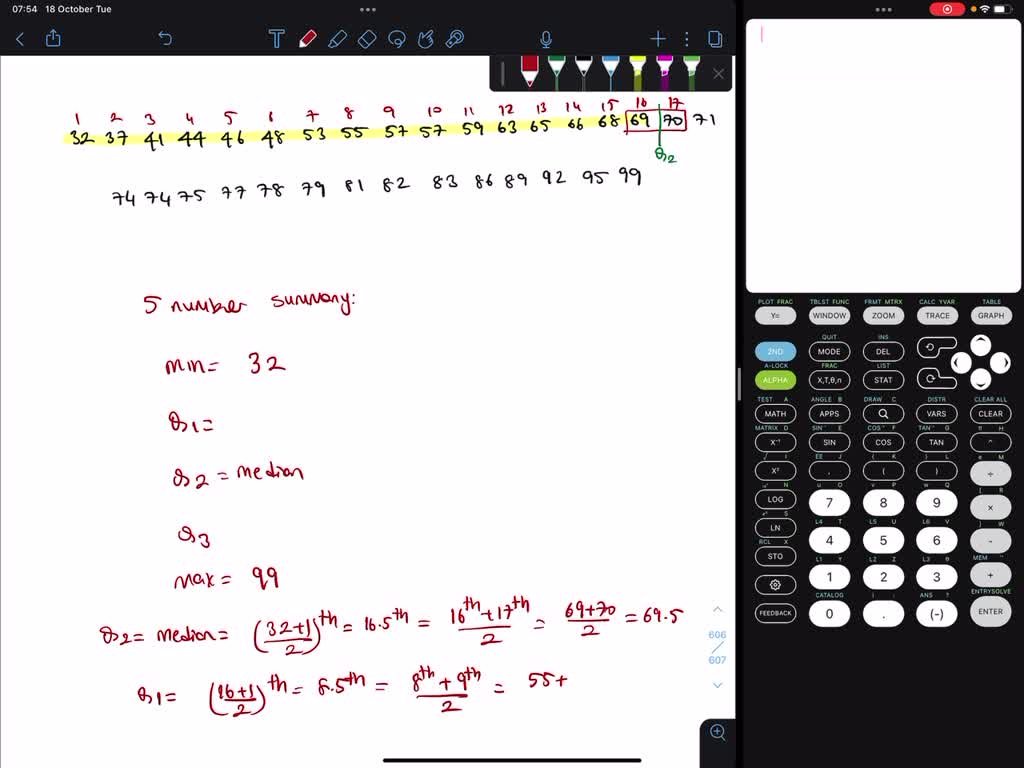 07:54 18 October Tue
1 2 3 4 5 6 7 8 9 10 11 12 13 14 15 16 17
32 37 41 44 46 48 53 55 57 57 59 63 65 66 68 69 70 71
Q2
74 74 75 77 78 79 81 82 83 86 89 92 95 99
5 number summary:
min = 32
Q1 =
Q2 = median
Q3
max = 99
Q2 = median = (32+1/2)^th = 16.5^th = 16^th+17^th/2 = 69+70/2 = 69.5
Q1 = (16+1/2)^th = 8.5^th = 8^th+9^th/2 = 55+
606
607
PLOT FRAC TBLST FUNC FRMT MTRX CALC YVAR TABLE
Y= WINDOW ZOOM TRACE GRAPH
QUIT INS
2ND MODE DEL
A-LOCK FRAC LIST
ALPHA X,T,θ,n STAT
TEST A ANGLE B DRAW C DISTR CLEAR ALL
MATH APPS VARS CLEAR
MATRIX D SIN⁻¹ E COS⁻¹ F TAN⁻¹ G π H
X⁻¹ SIN COS TAN ^
√ I EE J { K } L e M
X² , ( ) ÷
N u O v P w Q [ R
LOG 7 8 9 ×
S L4 T L5 U L6 V ] W
LN 4 5 6 -
RCL X L1 Y L2 Z L3 θ MEM "
STO 1 2 3 +
CATALOG i : ANS ? ENTRYSOLVE
FEEDBACK 0 . (-) ENTER